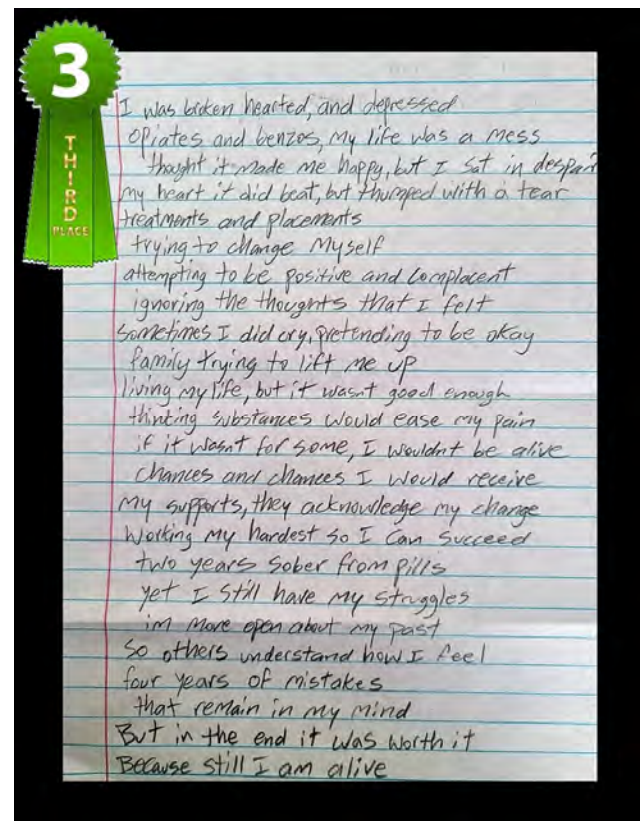 3
THIRD
PLACE
I was broken hearted, and depressed
opiates and benzos, my life was a mess
thought it made me happy, but I sat in despair
my heart it did beat, but thumped with a tear
treatments and placements
trying to change myself
attempting to be positive and complacent
ignoring the thoughts that I felt
sometimes I did cry, pretending to be okay
family trying to lift me up
living my life, but it wasnt good enough
thinking substances would ease my pain
if it wasnt for some, I wouldnt be alive
chances and chances I would receive
my supports, they acknowledge my change
working my hardest so I can succeed
two years sober from pills
yet I still have my struggles
im more open about my past
so others understand how I feel
four years of mistakes
that remain in my mind
But in the end it was worth it
Because still I am alive